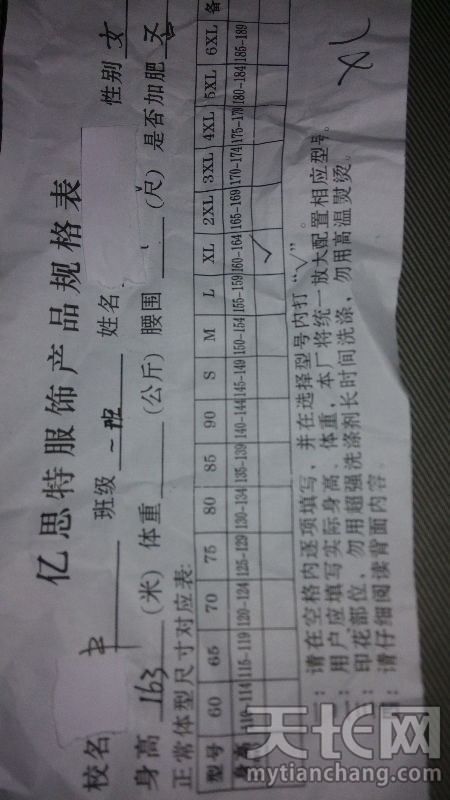 亿思特服饰产品规格表
校名 班级 一班 姓名 性别 女
身高 163 (米) 体重 (公斤) 腰围 (尺) 是否加肥 否
正常体型尺寸对应表:
型号 60 65 70 75 80 85 90 S M L XL 2XL 3XL 4XL 5XL 6XL 备
身高 110-114 115-119 120-124 125-129 130-134 135-139 140-144 145-149 150-154 155-159 160-164 165-169 170-174 175-179 180-184 185-189
✓
一:请在空格内逐项填写,并在选择型号内打"√"。
二:用户应填写实际身高、体重,本厂将统一放大配置相应型号。
三:印花部位,勿用超强洗涤剂长时间洗涤,勿用高温熨烫。
四:请仔细阅读背面内容。
XL
天长网
mytianchang.com